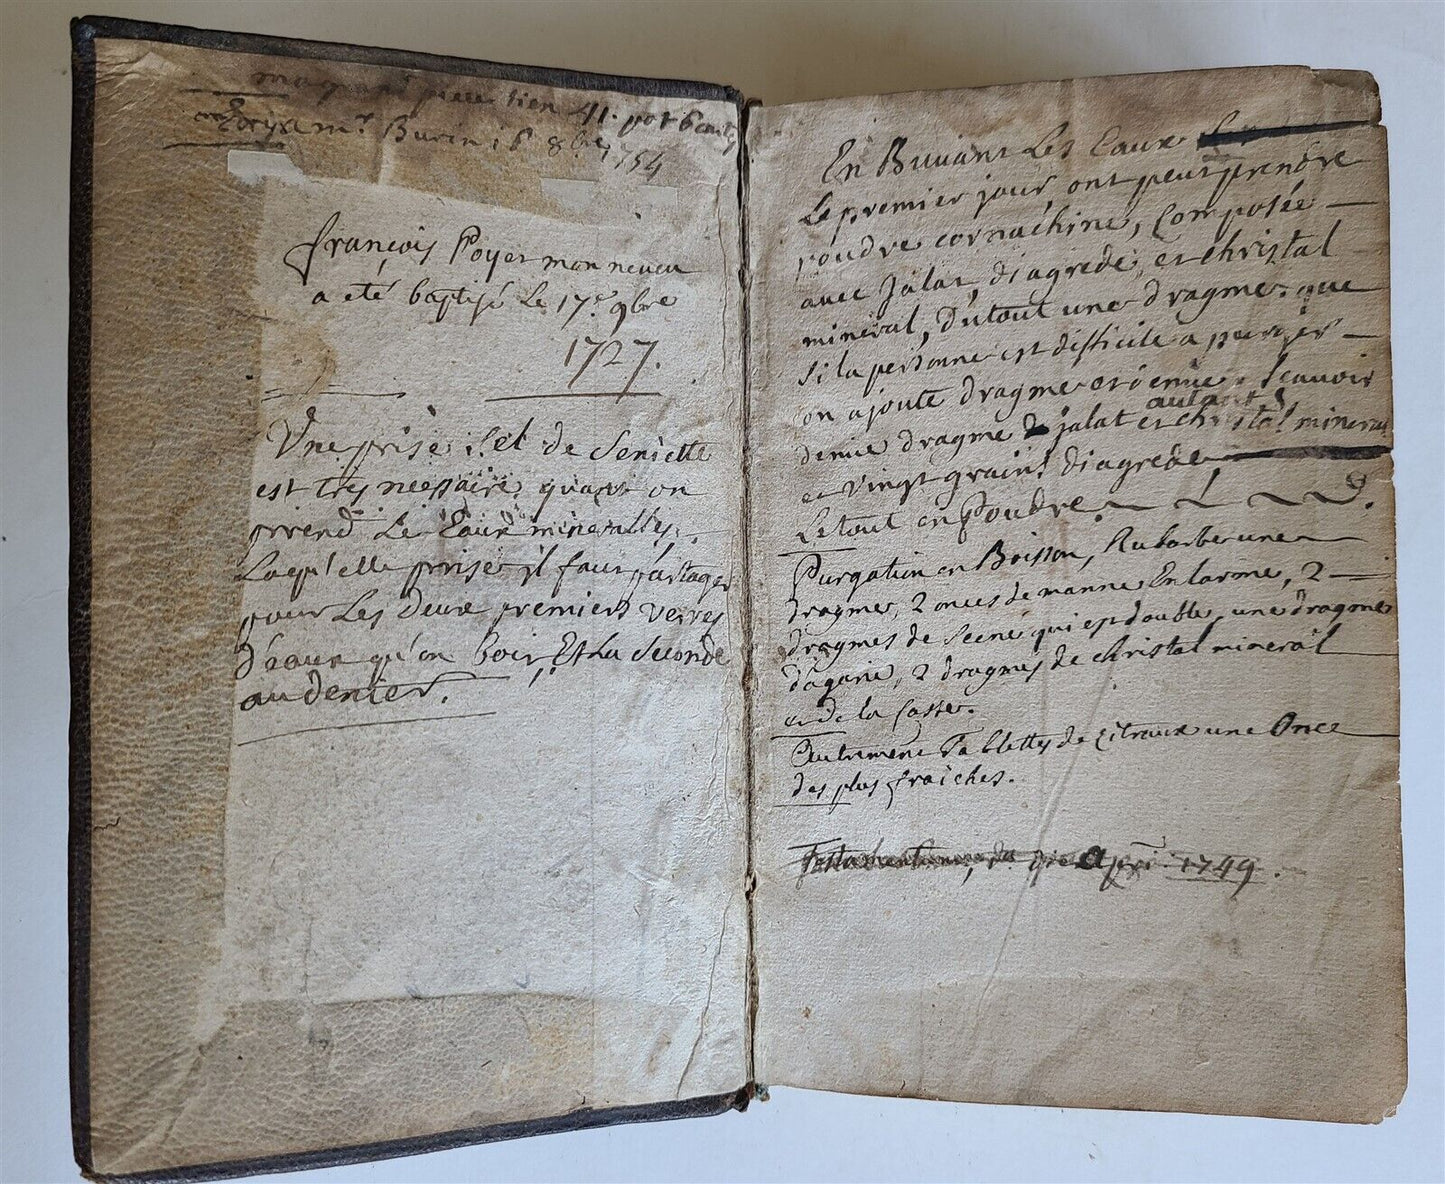 piece tien 41. pot
mr Burin 16 8bre 1754
françois Poyet mon neveu
a eté baptisé Le 17e. 9bre
1727.
Une prise Sel de Seniette
est tres necessaire quant on
prend Le Eaux mineralles.
Laqu'elle prise il faut partager
pour Les Deux premiers verres
D'eaux qu'on boit, Et La Seconde
au Denier.
En Buvant Les Eaux
Le premier jour, ont peut prendre
poudre cornachine, Composée
avec Jalat, Diagrede, et Christal
mineral, Dutout une Dragme. que
Si La personne est difficile a purger
on ajoute Dragme et demie. Scavoir
autant
demie dragme jalat et christal mineral
et vingt grains Diagrede
Le tout en Poudre.
Purgation en Boisson, Rubarbe une
dragme, 2 onces de manne En larme, 2
dragmes de Seené qui est double, une dragme
d'agaric, 2 dragmes de christal mineral
et de la Casse.
Autrement Tablettes de Citraux une Once
des plus fraiches.
1749.